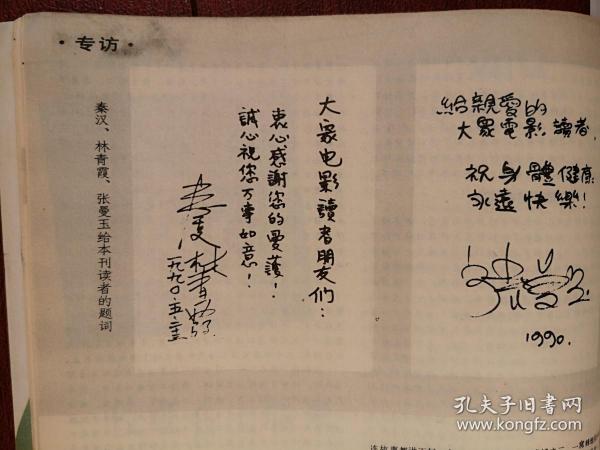 ·专访·
秦汉、林青霞、张曼玉给本刊读者的题词
大眾电影讀者朋友们：
衷心感謝您的愛護！
誠心祝您万事如意！
秦漢 林青霞
一九九〇·五·二五
給親愛的
大眾電影讀者，
祝身體健康
永遠快樂！
1990.
孔夫子旧书网
www.kongfz.com